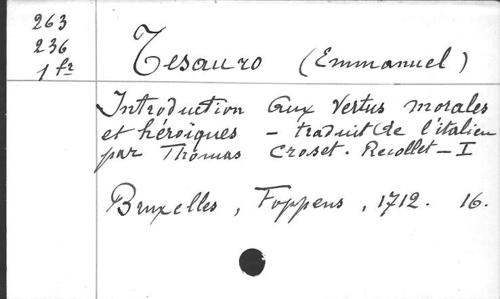 263
236
1 fr
Tesauro (Emmanuel)
Introduction aux vertus morales
et héroïques - traduit de l'italien
par Thomas Croset. Recollet - I
Bruxelles, Foppens, 1712. 16.